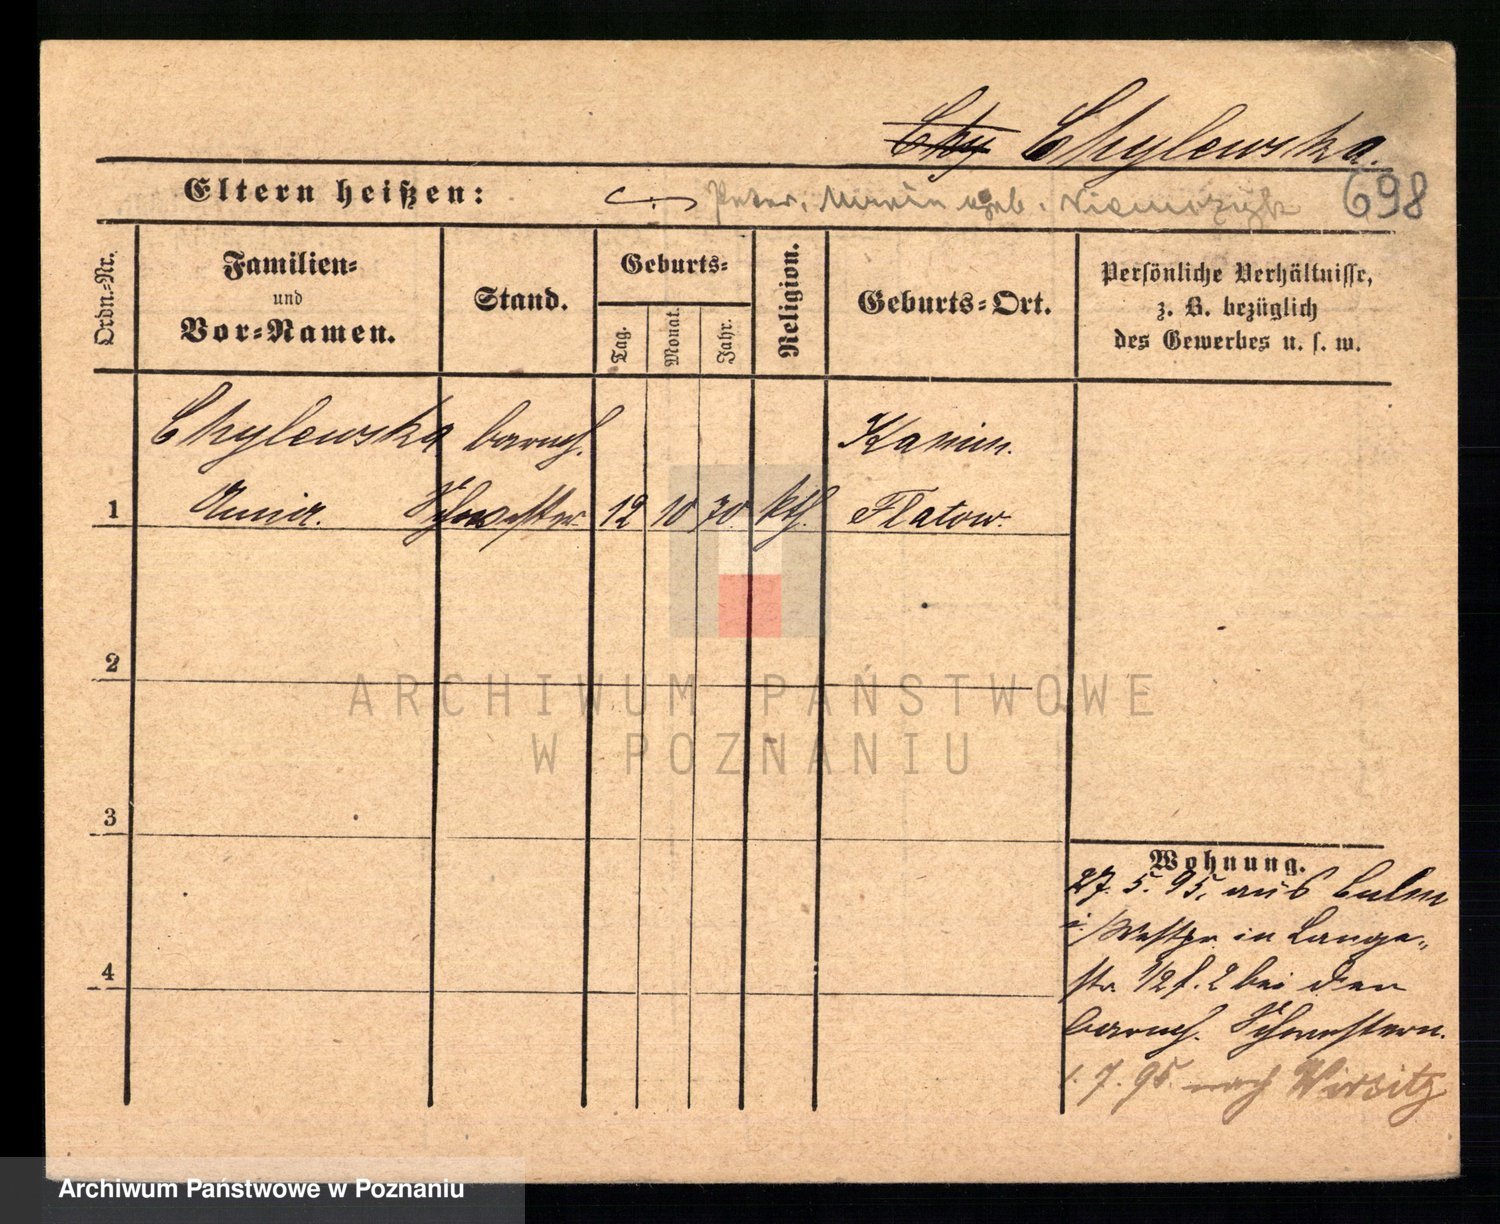 Chy Chylewska.
Eltern heißen: Peter, Maria geb. 698
Ordn.-Nr.
Familien-
und
Vor-Namen.
Stand.
Geburts-
Tag.
Monat.
Jahr.
Religion.
Geburts-Ort.
Persönliche Verhältnisse,
z. B. bezüglich
des Gewerbes u. s. w.
Chylewska barmh. Kamin.
1 Schwester 12 10 70 kth. Flatow.
2
3
4
Wohnung.
27. 5. 95. aus Culm
i/Westpr in Lange-
str 1/2 f. 2 bei den
barmh. Schwestern.
1. 7. 95 nach Wirsitz
ARCHIWUM PAŃSTWOWE
W POZNANIU
Archiwum Państwowe w Poznaniu